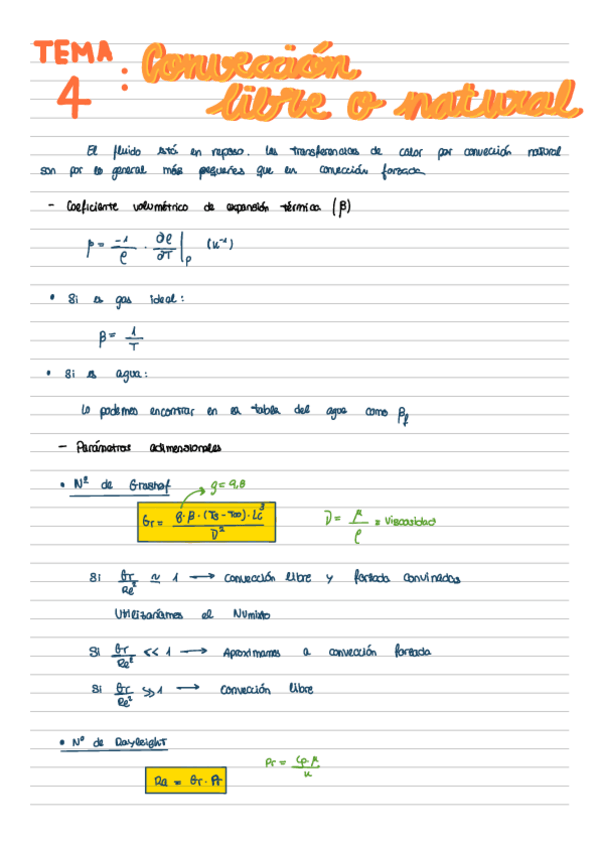 TEMA 4: Convección
libre o natural
El fluido está en reposo. Las transferencias de calor por convección natural
son por lo general más pequeñas que en convección forzada
- Coeficiente volumétrico de expansión térmica (β)
β = -1/ρ · ∂ρ/∂T |p (K⁻¹)
• Si es gas ideal:
β = 1/T
• Si es agua:
Lo podemos encontrar en la tabla del agua como βf
- Parámetros adimensionales
• Nº de Grashof → g = 9,8
Gr = g·β·(Ts - T∞)·Lc³/ν² ν = μ/ρ = Viscosidad
Si Gr/Re² ≃ 1 → convección libre y forzada convinadas
Utilizaríamos el Numixto
Si Gr/Re² << 1 → Aproximamos a convección forzada
Si Gr/Re² >> 1 → convección libre
• Nº de Rayleight
Pr = Cp·μ/k
Ra = Gr · Pr